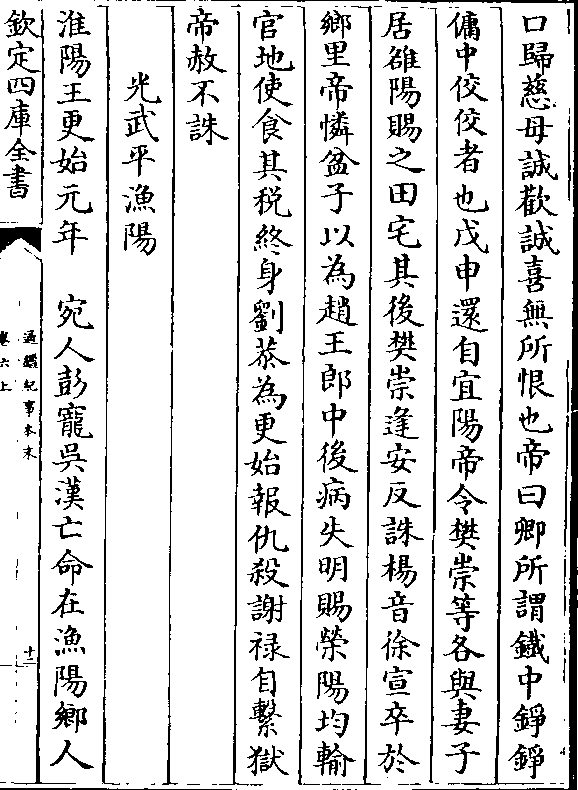 口歸慈母誠歡誠喜無所恨也帝曰卿所謂鐵中錚錚
傭中佼佼者也戊申還自宜陽帝令樊崇等各與妻子
居雒陽賜之田宅其後樊崇逢安反誅楊音徐宣卒於
鄉里帝憐盆子以為趙王郎中後病失明賜滎陽均輸
官地使食其税終身劉恭為更始報仇殺謝禄自繫獄
帝赦不誅
光武平漁陽
淮陽王更始元年 宛人彭寵吳漢亡命在漁陽鄉人
欽定四庫全書
通鑑紀事本末
卷六上
十二